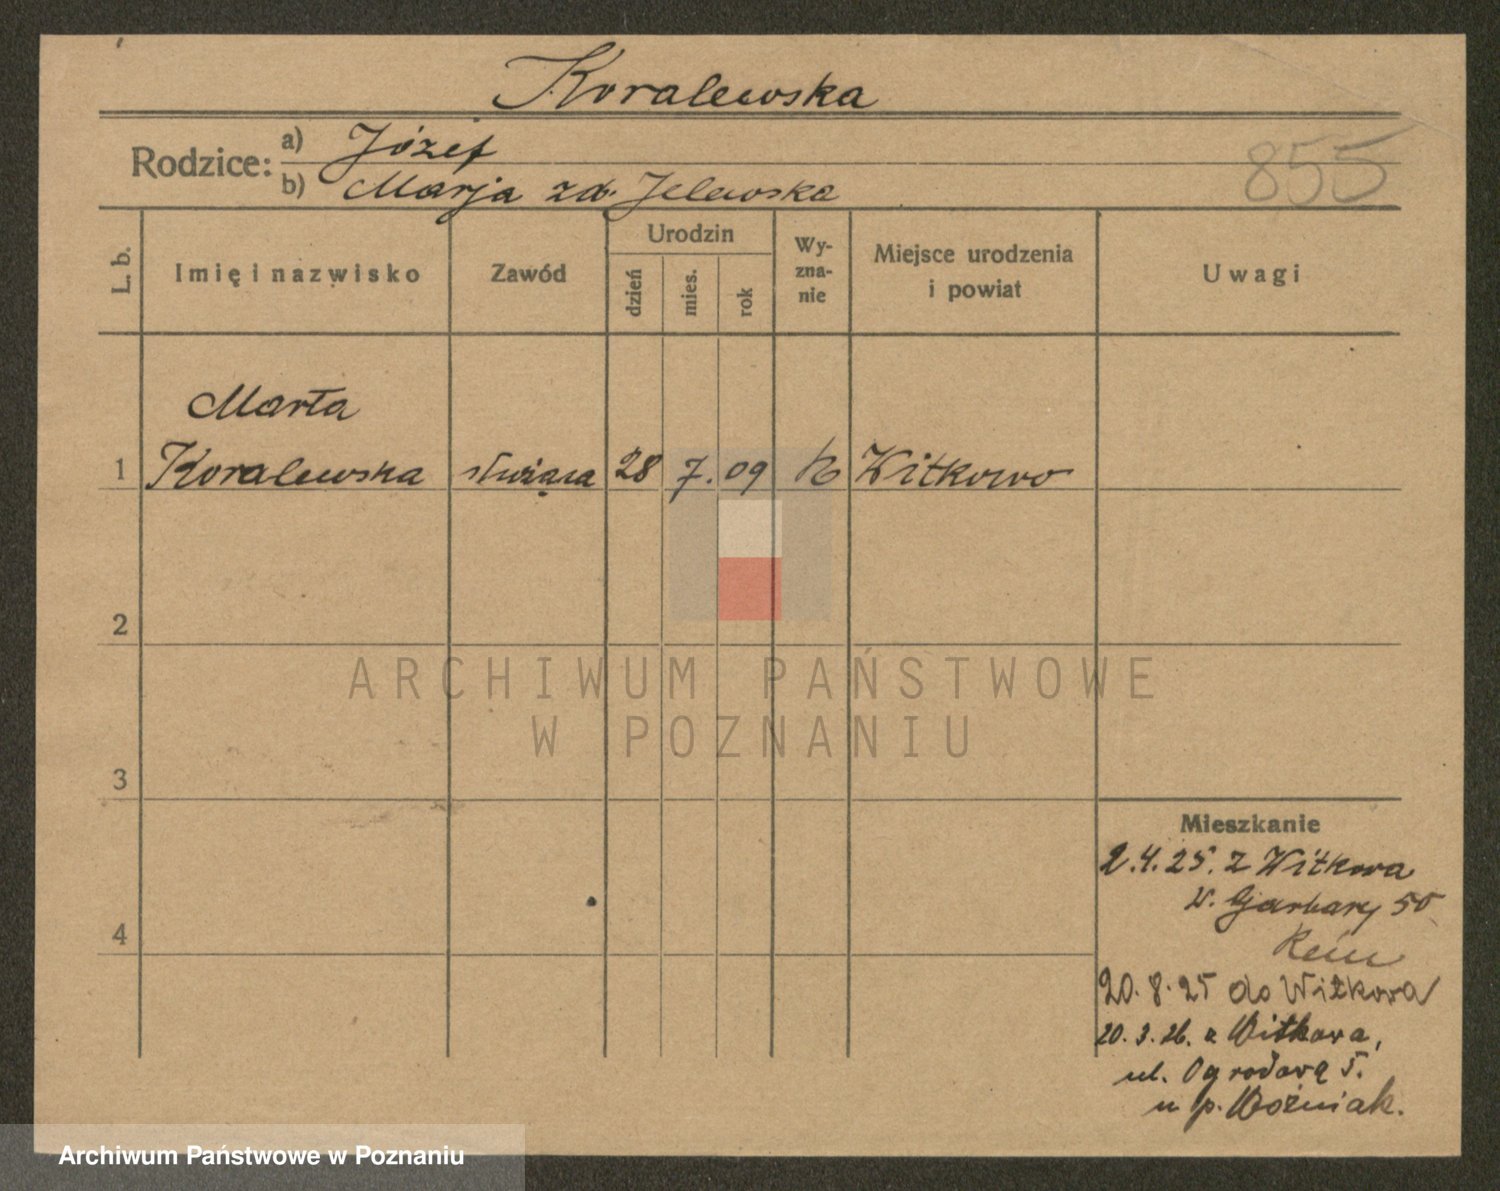 Koralewska
Rodzice:
a) Józef
b) Marja zd. Jelewska
855
L. b.
Imię i nazwisko
Zawód
Urodzin
dzień
mies.
rok
Wy-
zna-
nie
Miejsce urodzenia
i powiat
Uwagi
Marta
1 Koralewska służąca 28 7. 09 Witkowo
2
3
4
ARCHIWUM PAŃSTWOWE
W POZNANIU
Mieszkanie
2.4.25. z Witkowa
Garbary 50
20.8.25 do Witkowa
20.3.26. z Witkowa,
ul. Ogrodową 5.
u p. Woźniak.
Archiwum Państwowe w Poznaniu